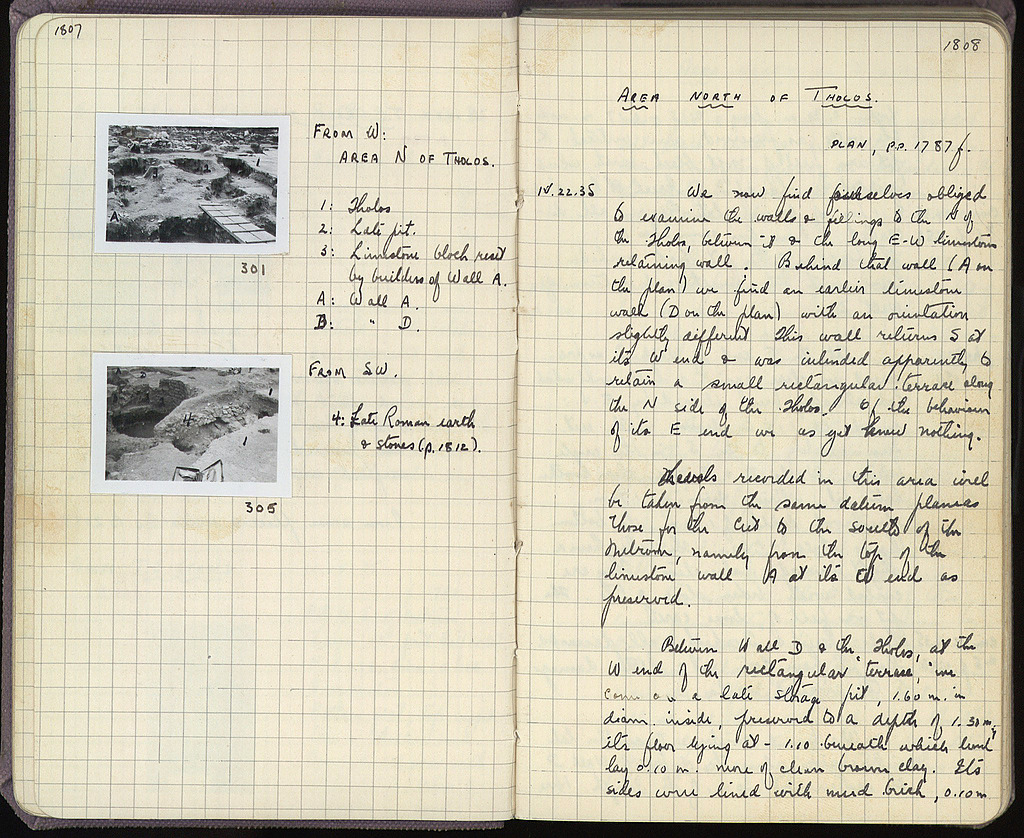 1807
FROM W:
AREA N OF THOLOS.
1: Tholos
2: Late pit.
3: Limestone block reset
by builders of Wall A.
A: Wall A.
B: " D.
301
FROM SW.
4: Late Roman earth
& stones (p. 1812).
305
1808
AREA NORTH OF THOLOS.
PLAN, pp. 1787f.
IV.22.35 We now find ourselves obliged
to examine the walls & fillings to the N of
the Tholos, between it & the long E-W limestone
retaining wall. Behind that wall (A on
the plan) we find an earlier limestone
wall (D on the plan) with an orientation
slightly different. This wall returns S at
its W end & was intended apparently to
retain a small rectangular terrace along
the N side of the Tholos. Of the behaviour
of its E end we as yet know nothing.
Levels recorded in this area will
be taken from the same datum plane as
those for the Cut to the south of the
Metroon, namely from the top of the
limestone wall A at its end as
preserved.
Between Wall D & the Tholos, at the
W end of the rectangular "terrace," we
come on a late storage pit, 1.60 m. in
diam. inside, preserved to a depth of 1.30 m.,
its floor lying at - 1.10 beneath which level
lay 0.10 m. more of clean brown clay. Its
sides were lined with mud brick, 0.10 m.